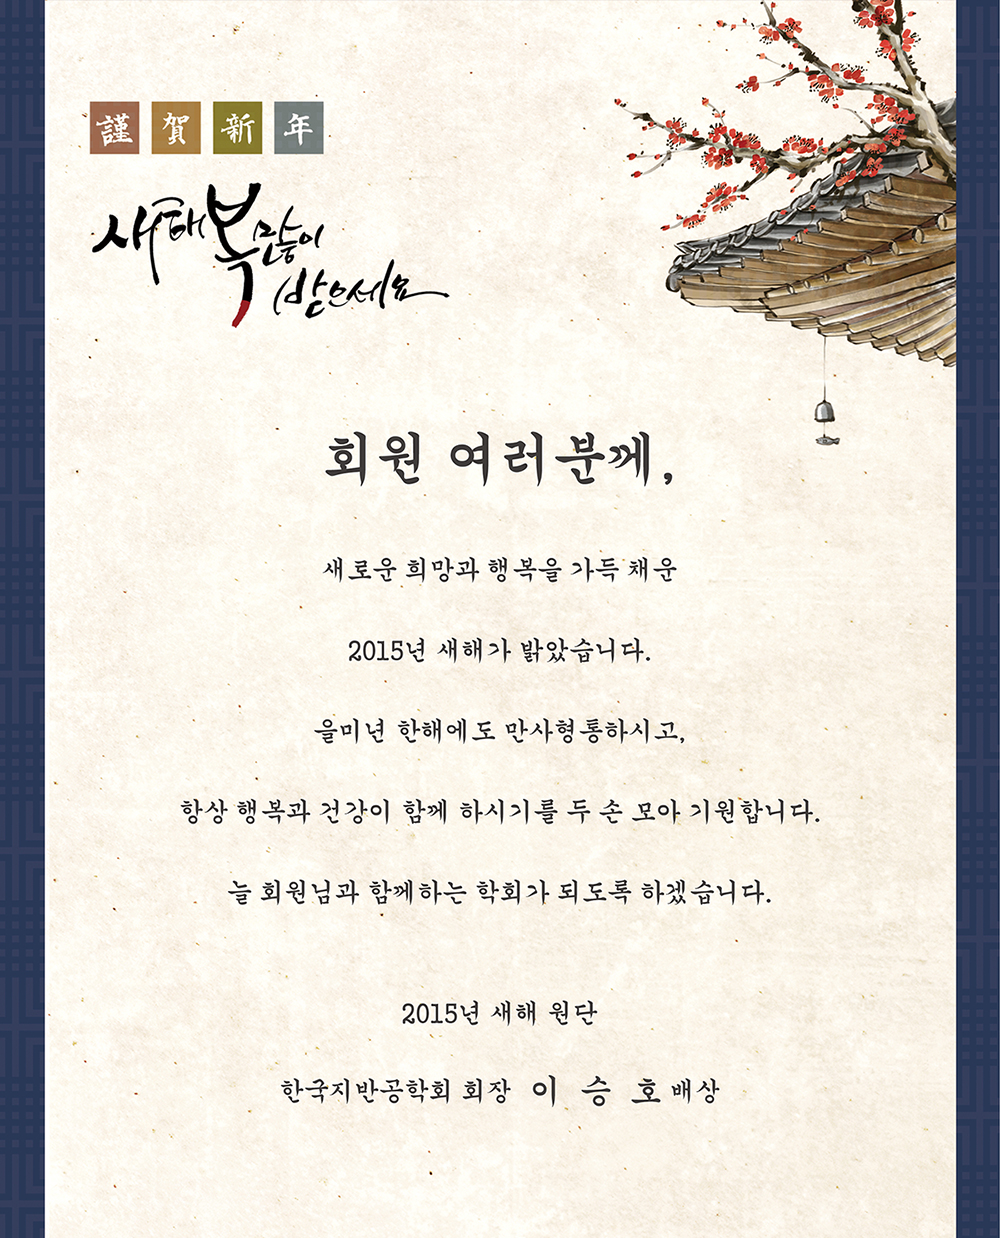 謹賀新年
새해 복 많이
받으세요
회원 여러분께,
새로운 희망과 행복을 가득 채운
2015년 새해가 밝았습니다.
을미년 한해에도 만사형통하시고,
항상 행복과 건강이 함께 하시기를 두 손 모아 기원합니다.
늘 회원님과 함께하는 학회가 되도록 하겠습니다.
2015년 새해 원단
한국지반공학회 회장 이 승 호 배상